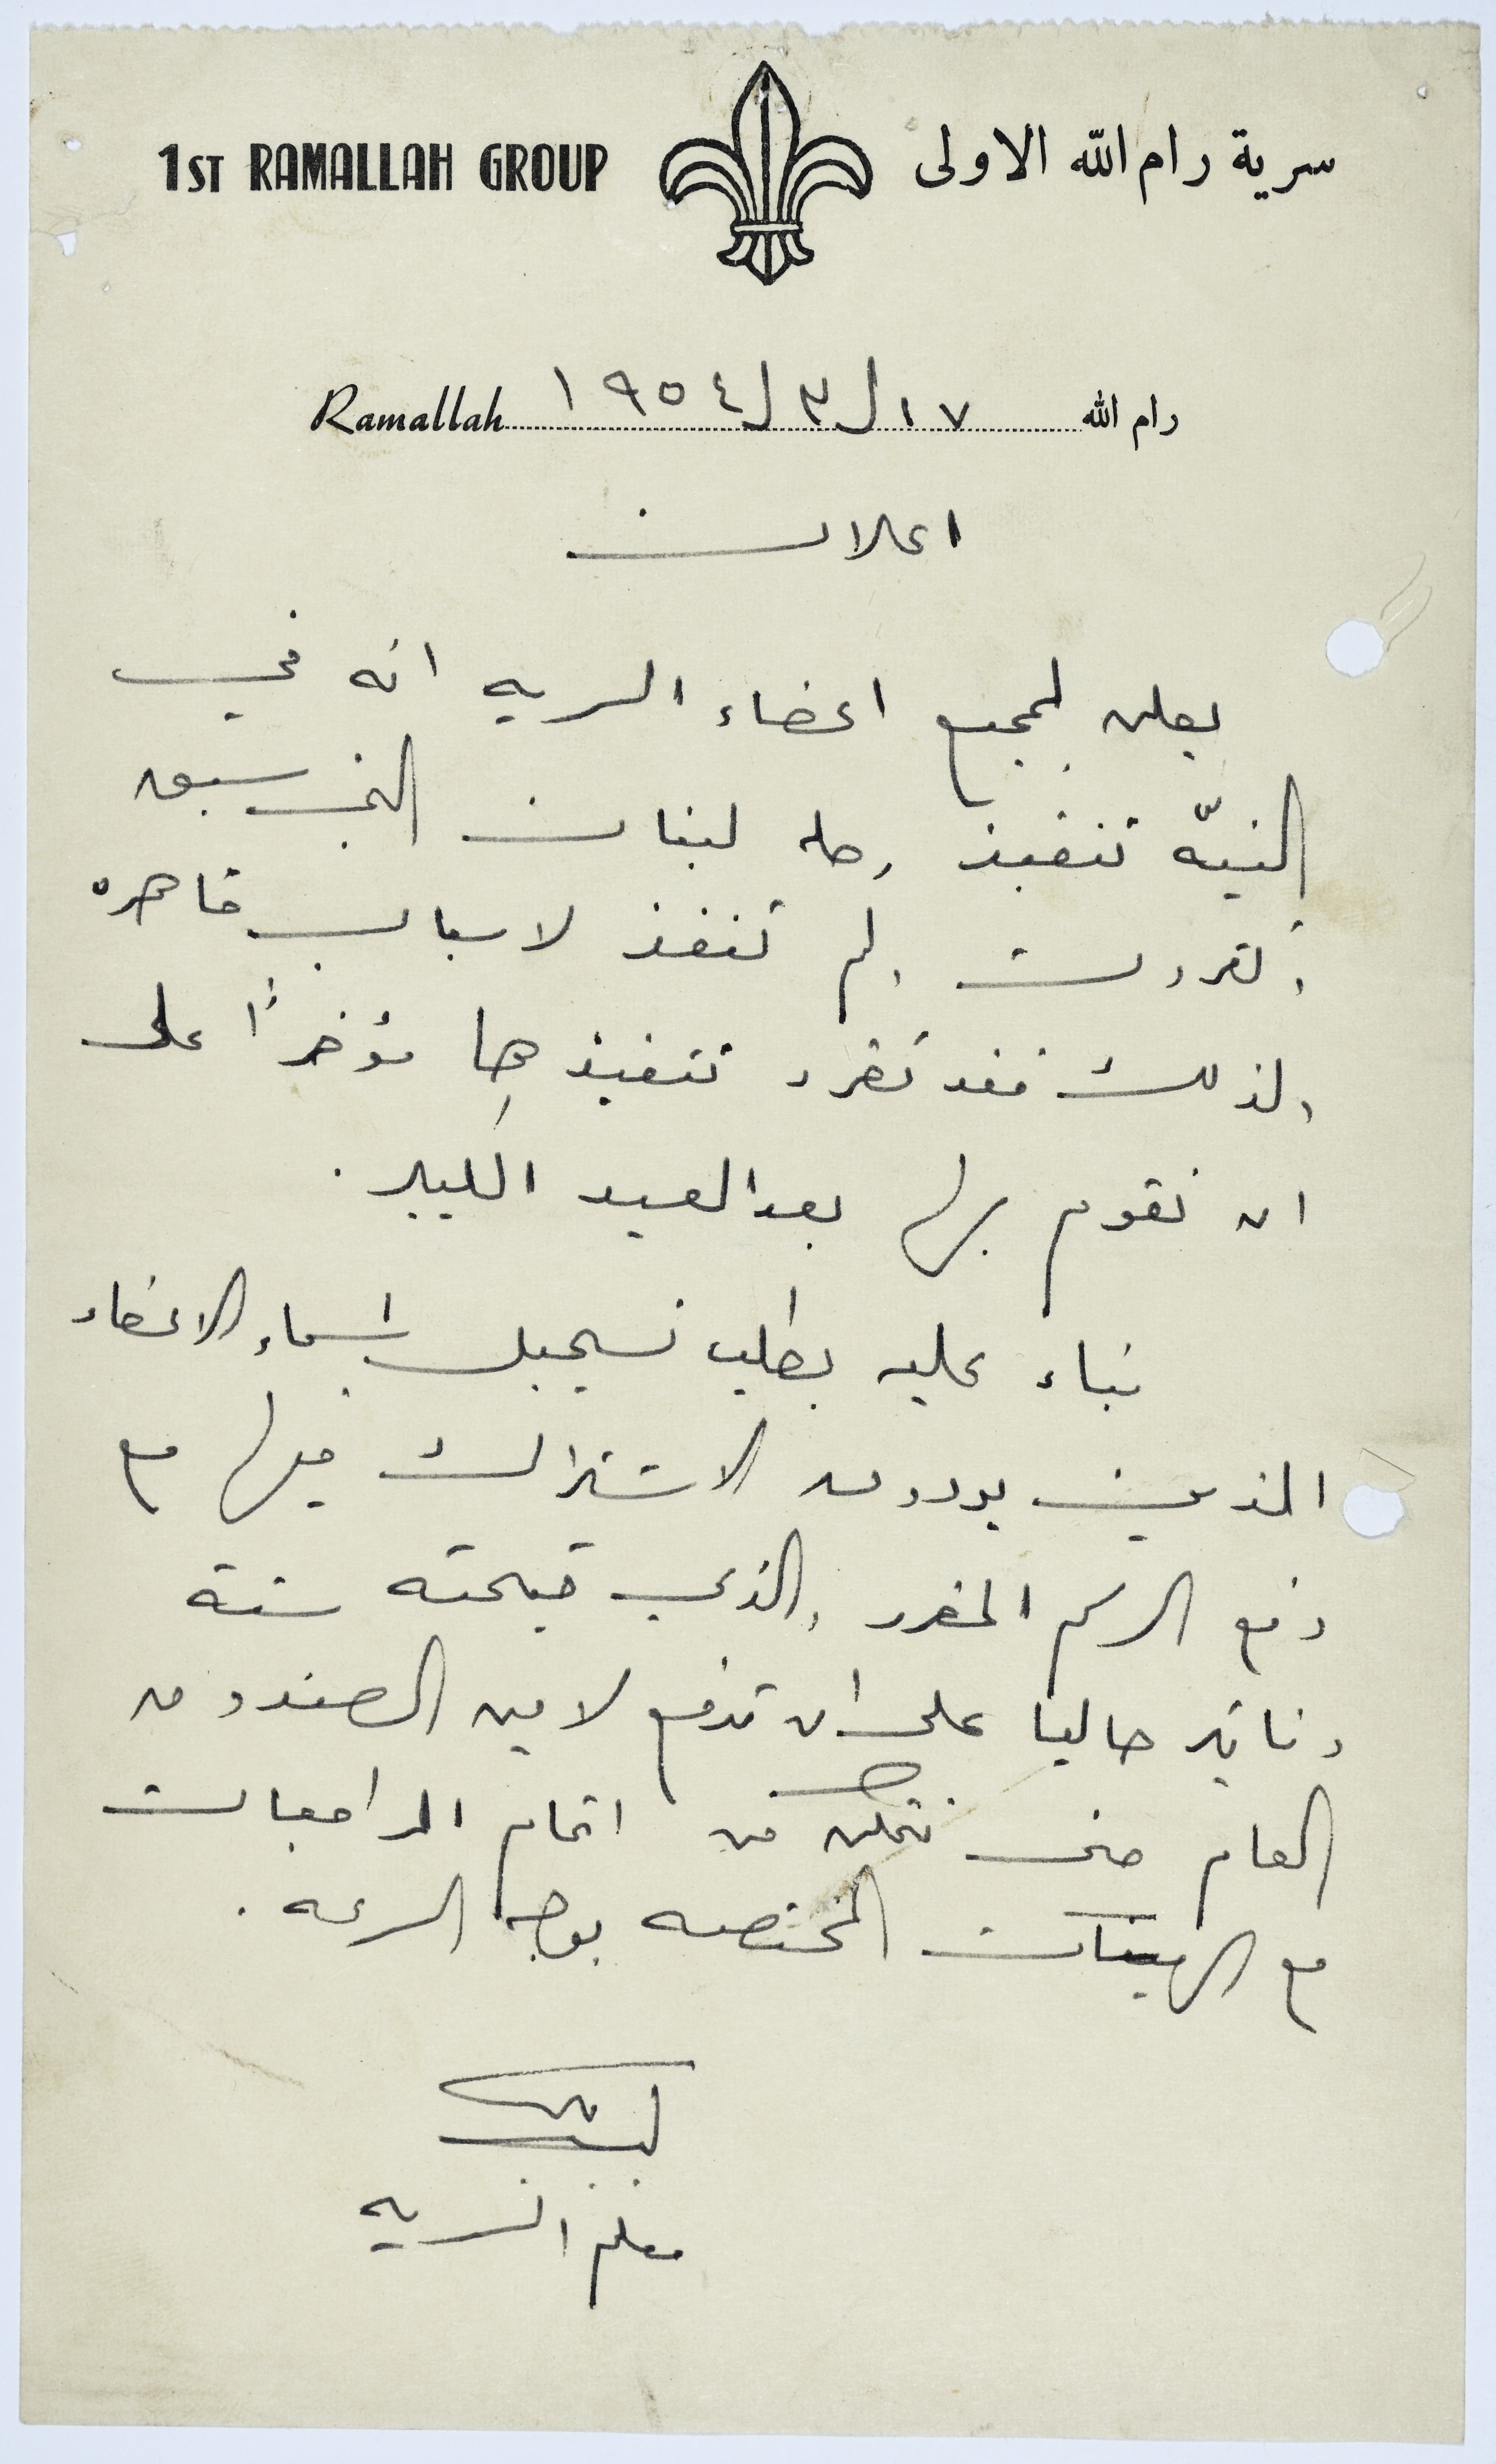 1ST RAMALLAH GROUP سرية رام الله الاولى
رام الله ١٧/٣/١٩٥٤ Ramallah
اعلان
يعلن لجميع اعضاء السريه انه في
النيّه تنفيذ رحله لبنان التي سبق
وتقررت ولم تنفذ لاسباب قاهره
ولذلك فقد تقرر تنفيذها مؤخراً على
ان نقوم بها بعد العيد الكبير.
بناء عليه يطلب تسجيل اسماء الاعضاء
الذين يودون الاشتراك فيها مع
دفع الرسم المقرر والذي قيمته ستة
دنانير حاليا على ان تدفع لامين الصندوق
العام حتى نتمكن من اتمام المراجعات
مع الهيئات المختصه بوجه السرعه.
معلم السريه